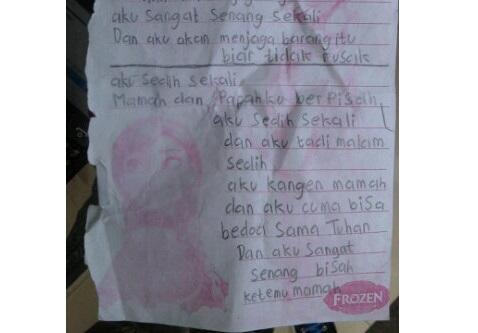 aku sangat senang sekali
Dan aku akan menjaga barang itu
biar tidak rusak
aku sedih sekali
Mamah dan Papahku berpisah
aku sedih sekali
dan aku tadi malam
sedih
aku kangen mamah
dan aku cuma bisa
bedoa sama Tuhan
Dan aku sangat
senang bisah
ketemu mamah
FROZEN